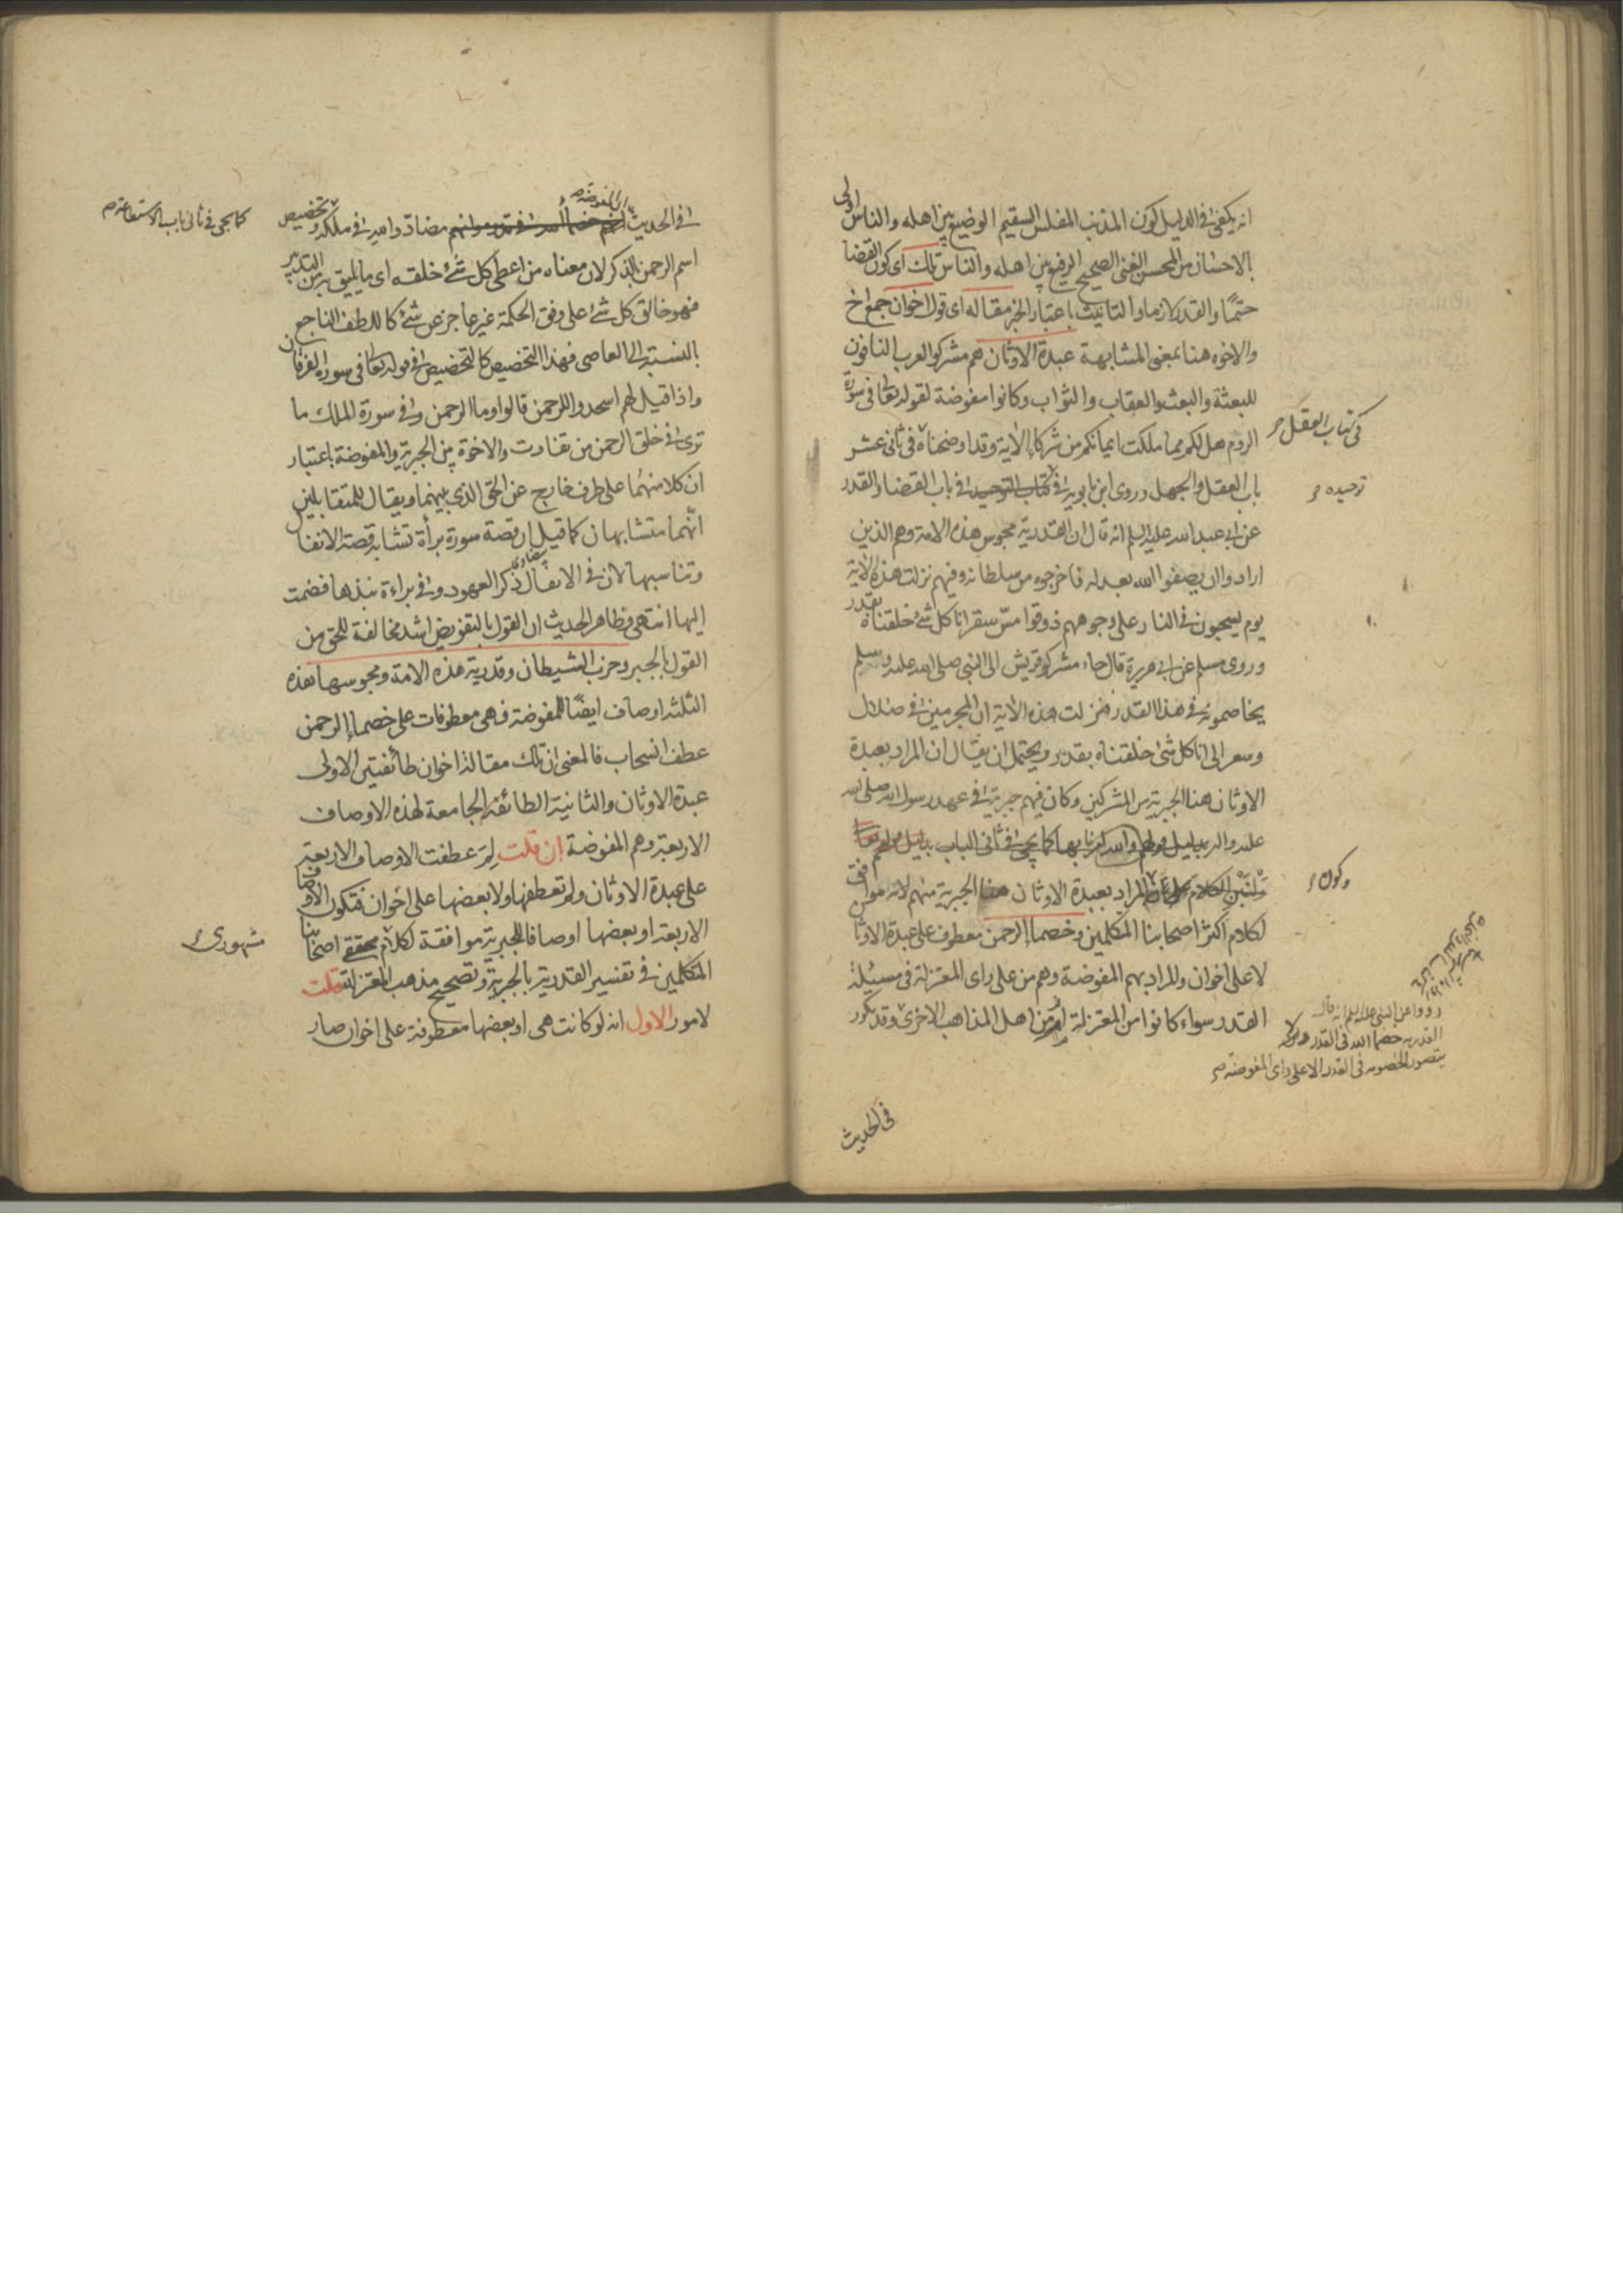 انه يكفي في الدليل كون المذنب المفلس السقيم الوضيع بين اهله والناس اولى
بالاحسان من المحسن الغنى الصحيح الرفيع بين اهله والناس تلك اى كون القضا
حتمًا والقدر لازما والتانيث باعتبار الخبر مقالة اى قول اخوان جمع اخ
والاخوه هنا بمعنى المشابهة عبدة الاوثان هم مشركوا العرب النافون
للبعثة والبعث والعقاب والثواب وكانوا مفوضة لقوله تعا فى سورة
الروم هل لكم مما ملكت ايمانكم من شركاء الاية وقد اوضحناه فى ثانى عشر
فى كتاب العقل
باب العقل والجهل وروى ابن بابويه فى كتاب التوحيد فى باب القضا والقدر
توحيده
عن ابى عبد الله عليه السلم انه قال ان القدرية مجوس هذه الامة وهم الذين
ارادوا ان يصفوا الله بعدله فاخرجوه من سلطانه وفيهم نزلت هذه الاية
يوم يسحبون فى النار على وجوههم ذوقوا مسّ سقر انا كل شئ خلقناه بقدر
وروى مسلم عن ابى هريرة قال جاء مشركو قريش الى النبى صلى الله عليه وسلم
يخاصمونه فى هذا القدر فنزلت هذه الاية ان المجرمين فى ضلال
وسعر الى انا كل شئ خلقناه بقدر ويحتمل ان يقال ان المراد بعبدة
الاوثان هنا الجبرية من المشركين وكان فيهم جبرية فى عهد رسول الله صلى الله
عليه واله بدليل قولهم والله امرنا بها كما يجئ فى ثانى الباب
وكون
المراد بعبدة الاوثان هنا الجبرية منهم لانه موافق
لكلام اكثر اصحابنا المتكلمين وخصماء الرحمن معطوف على عبدة الاوثان
لا على اخوان والمراد بهم المفوضة وهم من على راى المعتزلة فى مسئلة
القدر سواء كانوا من المعتزلة او من اهل المذاهب الاخرى وقد ذكور
رووا عن النبى عليه السلم انه قال
القدرية خصماء الله فى القدر ولا
يتصور الخصومه فى القدر الا على راى المفوضة
فى الحديث
فى الحديث ان المفوضة مضادّوا الله فى ملكه وتخصيص
كما يجى فى ثانى باب الاستطاعة
اسم الرحمن بالذكر لان معناه من اعطى كل شئ خلقه اى ما يليق به من التدبير
فهو خالق كل شئ على وفق الحكمة غير عاجز عن شئ كاللطف الناجع
بالنسبة الى العاصى فهذا التخصيص كالتخصيص فى قوله تعا فى سورة الفرقان
واذا قيل لهم اسجدوا للرحمن قالوا وما الرحمن وفى سورة الملك ما
ترى فى خلق الرحمن من تفاوت والاخوة بين الجبرية والمفوضة باعتبار
ان كلا منهما على طرف خارج عن الحق الذى بينهما ويقال للمتقابلين
انّهما متشابهان كما قيل ان قصة سورة براة تشابه قصة الانفال
وتناسبها لان فى الانفال ذكر العهود وفى براءة نبذها فضمت
اليها انتهى وظاهر الحديث ان القول بالتفويض اشد مخالفة للحق من
القول بالجبر وحزب الشيطان وقدرية هذه الامة ومجوسها هذه
الثلثة اوصاف ايضًا للمفوضة فهى معطوفات على خصماء الرحمن
عطف انسحاب فالمعنى ان تلك مقالة اخوان طائفتين الاولى
عبدة الاوثان والثانية الطائفة الجامعة لهذه الاوصاف
الاربعة وهم المفوضة ان قلت لِمَ عطفت الاوصاف الاربعة
على عبدة الاوثان ولم تعطفها ولا بعضها على اخوان فتكون الاوصاف
الاربعة او بعضها اوصافا للجبرية موافقة لكلام محققى اصحابنا
مشهورى
المتكلمين فى تفسير القدرية بالجبرية وتصحيح مذهب المعتزلة قلت
لامور الاول انه لو كانت هى او بعضها معطوفة على اخوان صار